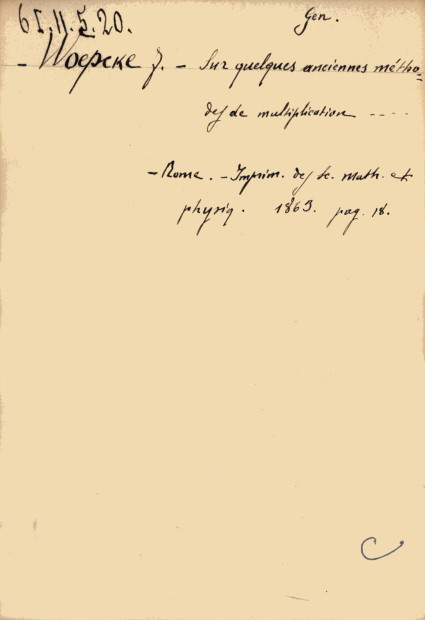 6I.11.5.20. Gen.
- Woepcke J. - Sur quelques anciennes métho=
des de multiplication ----
- Rome. - Imprim. des sc. math. et
physiq. 1863. pag. 18.